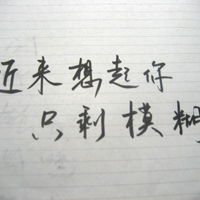 近来想起你
只剩模糊